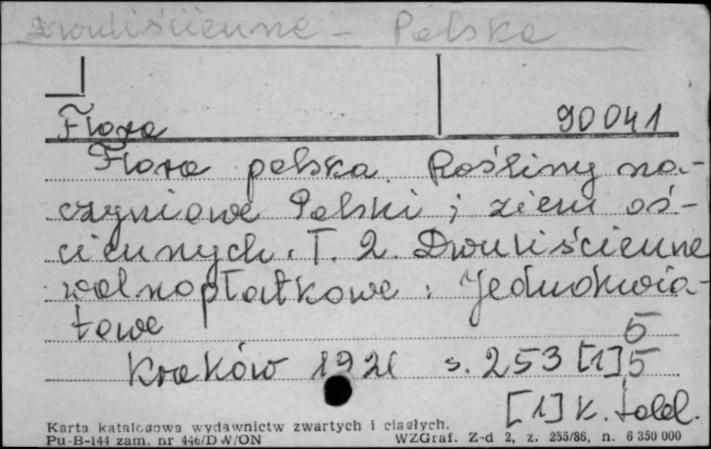 Dwuliścienne - Polska
Flora 90041
Flora polska. Rośliny na-
czyniowe Polski i ziem oś-
ciennych. T. 2. Dwuliścienne
wolnopłatkowe. Jednokwia-
towe 5
Kraków 1921 s. 253 [1] 5
[1] k. tabl.
Karta katalogowa wydawnictw zwartych i ciągłych.
Pu-B-144 zam. nr 446/D W/ON WZGraf. Z-d 2, z. 255/86, n. 6 350 000